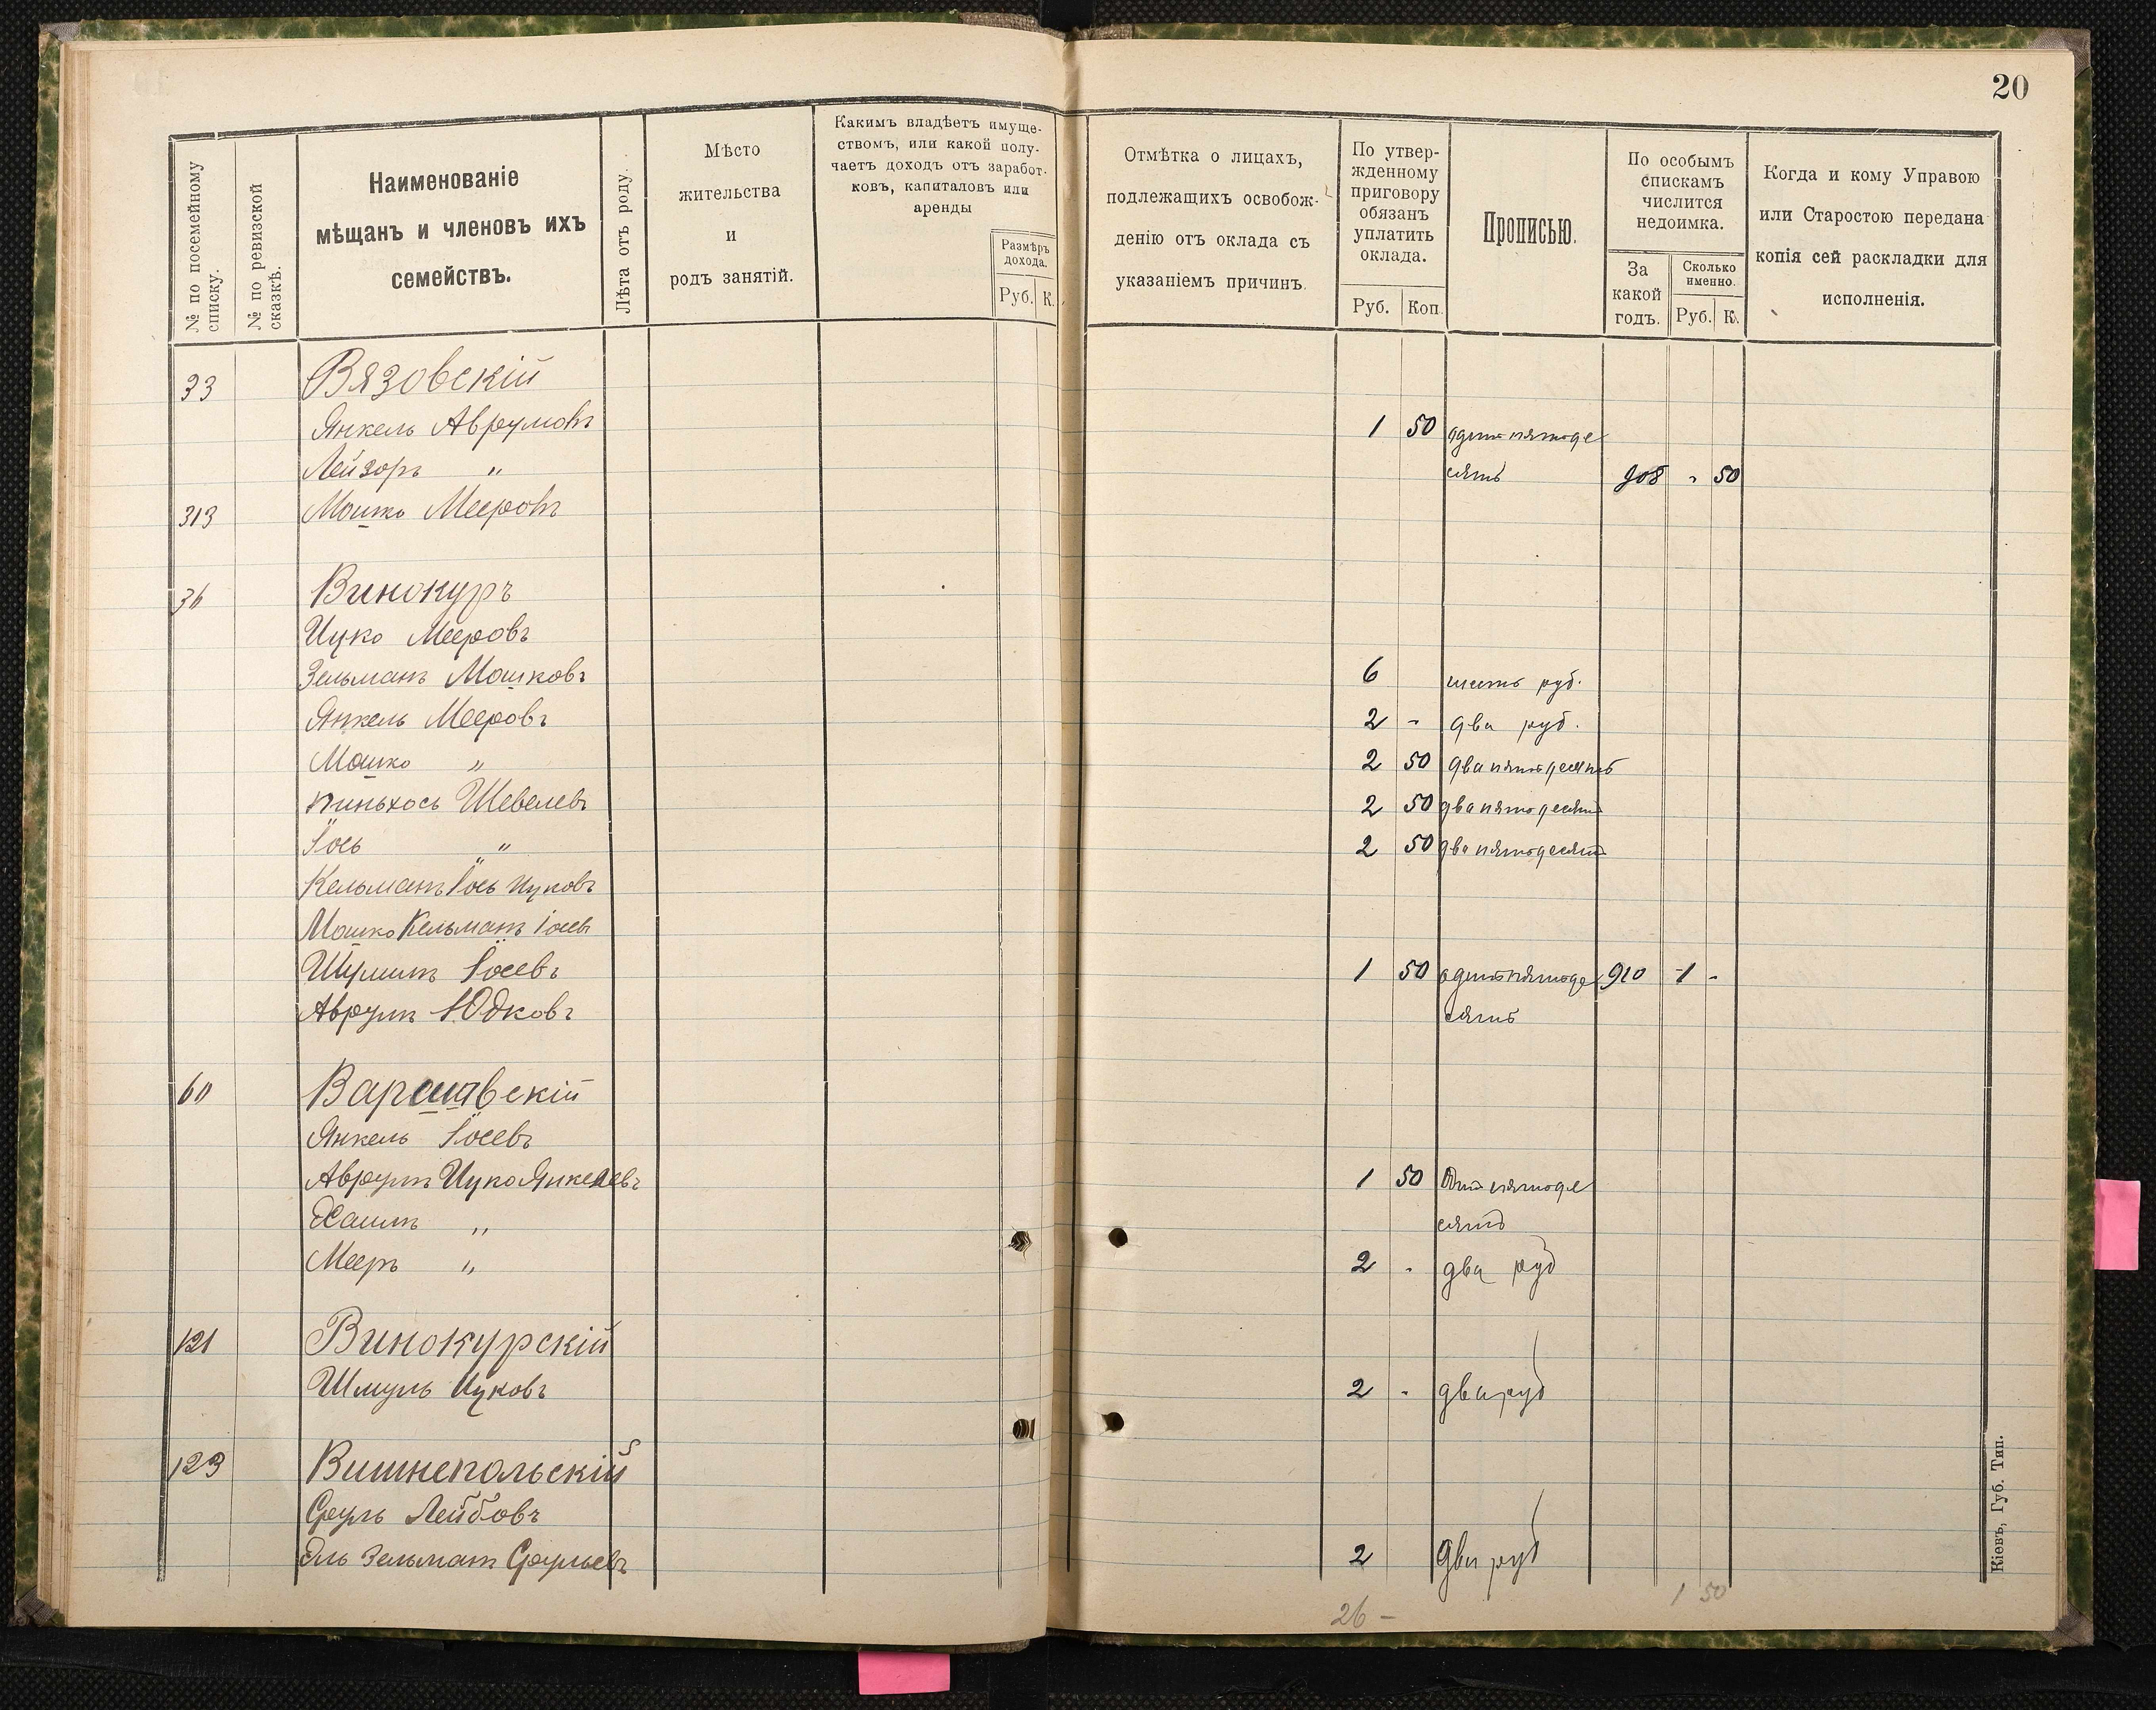 20
№ по посемейному списку.
№ по ревизской сказкѣ.
Наименованіе
мѣщанъ и членовъ ихъ
семействъ.
Лѣта отъ роду.
Мѣсто
жительства
и
родъ занятій.
Какимъ владѣетъ имуще-
ствомъ, или какой полу-
чаетъ доходъ отъ заработ-
ковъ, капиталовъ или
аренды
Размѣръ
дохода.
Руб. К.
Отмѣтка о лицахъ,
подлежащихъ освобож-
денію отъ оклада съ
указаніемъ причинъ.
По утвер-
жденному
приговору
обязанъ
уплатить
оклада.
Руб. Коп.
Прописью.
По особымъ
спискамъ
числится
недоимка.
За
какой
годъ.
Сколько
именно.
Руб. К.
Когда и кому Управою
или Старостою передана
копія сей раскладки для
исполненія.
33 Вязовскій
Янкель Аврумовъ 1 50 одинъ пятьде
Лейзоръ " сятъ 908 - 50
313 Мошко Мееровъ
36 Винокуръ
Ицко Мееровъ
Зельманъ Мошковъ 6 шесть руб.
Янкель Мееровъ 2 - два руб.
Мошко " 2 50 два пятьдесятъ
Пиньхось Шевелевъ 2 50 два пятьдесятъ
Іось " 2 50 два пятьдесятъ
Кельманъ Іось Ицковъ
Мошко Кельманъ Іосевъ
Шулимъ Іосевъ 1 50 одинъ пятьде 910 1 -
Аврумъ Юдковъ сятъ
60 Варшавскій
Янкель Іосевъ
Аврумъ Ицко Янкелевъ 1 50 Одинъ пятьде
Хаимъ " сятъ
Мееръ " 2 - два руб
121 Винокурскій
Шмуль Ицковъ 2 - два руб
123 Вишнепольскій
Сруль Лейбовъ
Эль Зельманъ Срульевъ 2 два руб
26 - 1 50
Кіевъ, Губ. Тип.